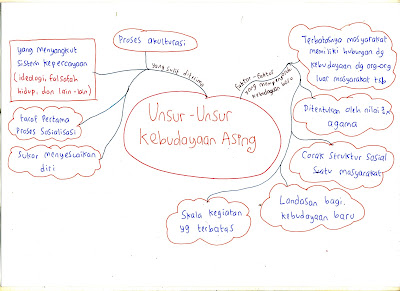 Proses akulturasi
yang menyangkut
sistem kepercayaan
(ideologi, falsafah
hidup, dan lain-lain)
Taraf Pertama
Proses Sosialisasi
Sukar menyesuaikan
diri
yang sulit diterima
Unsur-Unsur
Kebudayaan Asing
faktor-faktor
yang mempengaruhi
kebudayaan baru
Terbatasnya masyarakat
memiliki hubungan dg
kebudayaan dg org-org
luar masyarakat tsb
Ditentukan oleh nilai2x
agama
Corak Struktur Sosial
Suatu masyarakat
Landasan bagi
kebudayaan baru
Skala kegiatan
yg terbatas